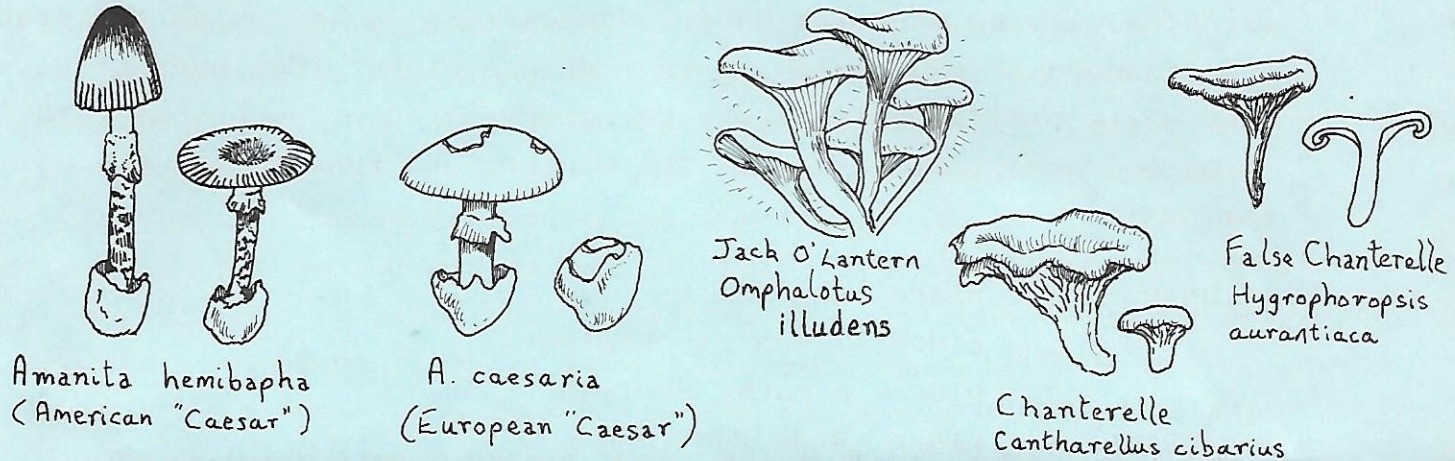 Amanita hemibapha
(American "Caesar")
A. caesaria
(European "Caesar")
Jack O'Lantern
Omphalotus
illudens
Chanterelle
Cantharellus cibarius
False Chanterelle
Hygrophoropsis
aurantiaca